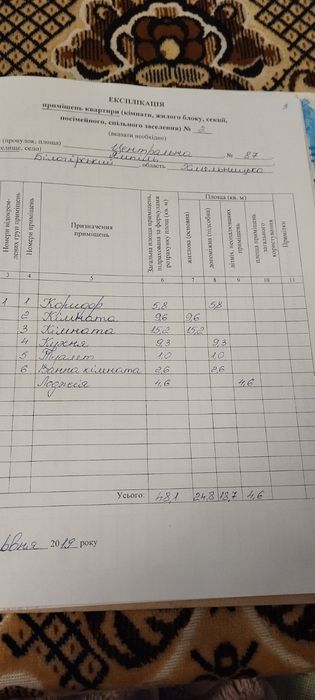 ЕКСПЛІКАЦІЯ
приміщень квартири (кімнати, жилого блоку, секції,
посімейного, спільного заселення) № 2
(вказати необхідне)
(провулок, площа) Центральна № 87
селище, село) Ямпіль
Білогірський область Хмельницька
Номери приміщень
Призначення приміщень
Загальна площа приміщень, підрахована за формулами розрахунку площ (кв. м)
Площа (кв. м)
житлова (основна)
допоміжна (підсобна)
літніх, неопалюваних приміщень
площа приміщень загального користування
Примітки
3 4 5 6 7 8 9 10 11
1 1 Коридор 5,8 5,8
2 Кімната 9,6 9,6
3 Кімната 15,2 15,2
4 Кухня 9,3 9,3
5 Туалет 1,0 1,0
6 Ванна кімната 2,6 2,6
Лоджія 4,6 4,6
Усього: 48,1 24,8 18,7 4,6
2019 року